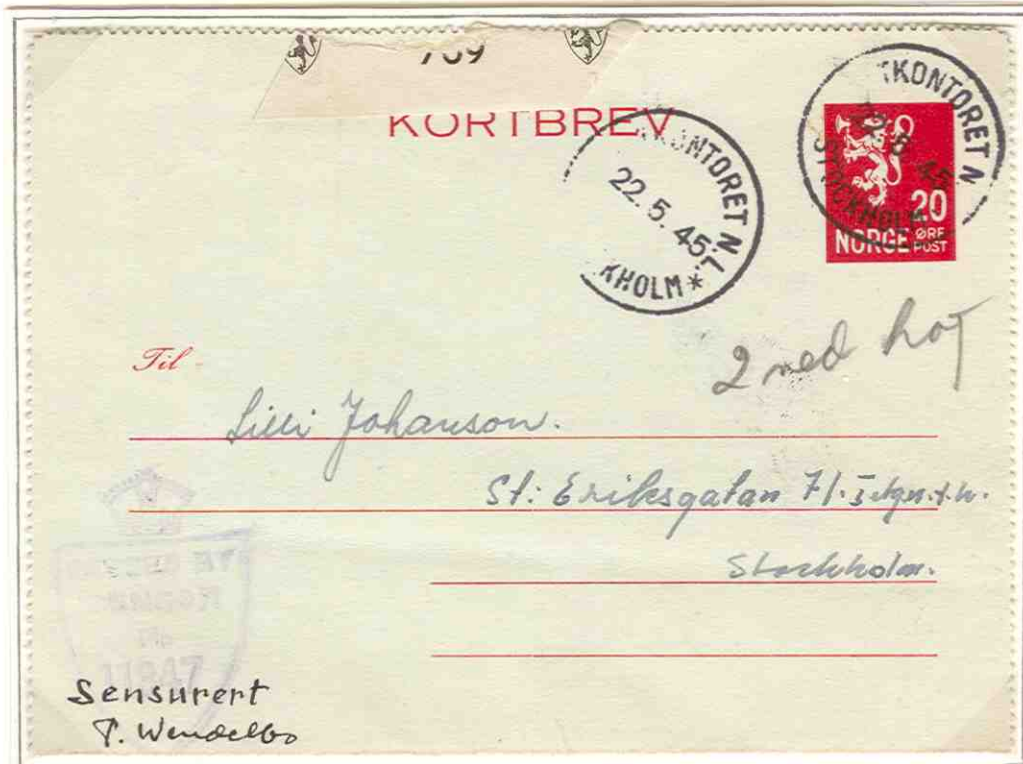 KORTBREV
KONTORET N
22.5.45
KHOLM *
KONTORET N
STOCKHOLM
20
NORGE ØRE POST
2 ned hot
Til
Lilli Johanson.
St: Eriksgatan 71.
Stockholm.
Sensurert
P. Wendelbo